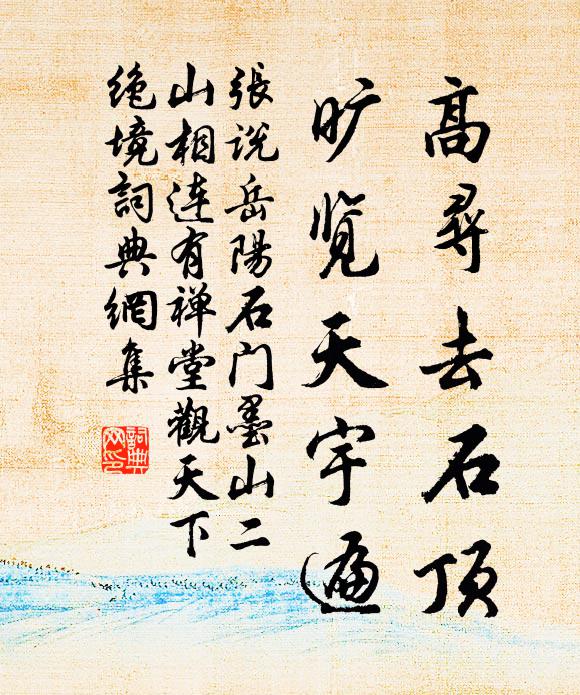 高尋去石頂
旷览天宇遍
張说岳陽石门墨山二
山相连有禅堂觀天下
绝境詞典網集
詞典網印